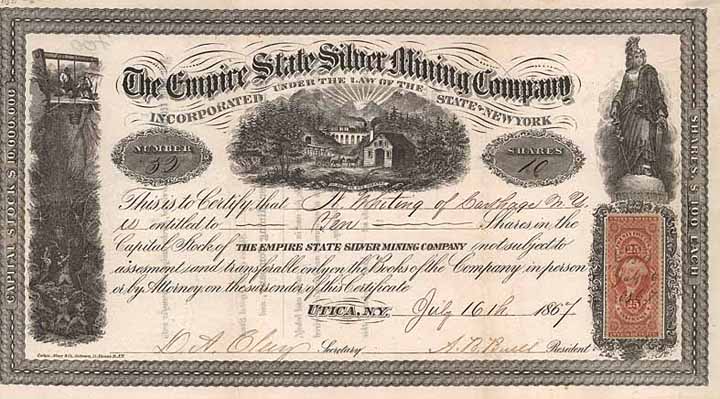 The Empire State Silver Mining Company
INCORPORATED UNDER THE LAW OF THE STATE OF NEW YORK
NUMBER
33
SHARES
10
This is to Certify that A. Whiting of Carthage N.Y.
is entitled to Ten Shares in the
Capital Stock of THE EMPIRE STATE SILVER MINING COMPANY (not subject to
assesment) and transferable only on the Books of the Company in person
or by Attorney on the surrender of this Certificate
UTICA, N.Y. July 16th 1867
Secretary
President
CAPITAL STOCK $ 10,000,000
SHARES, $ 100 EACH
25